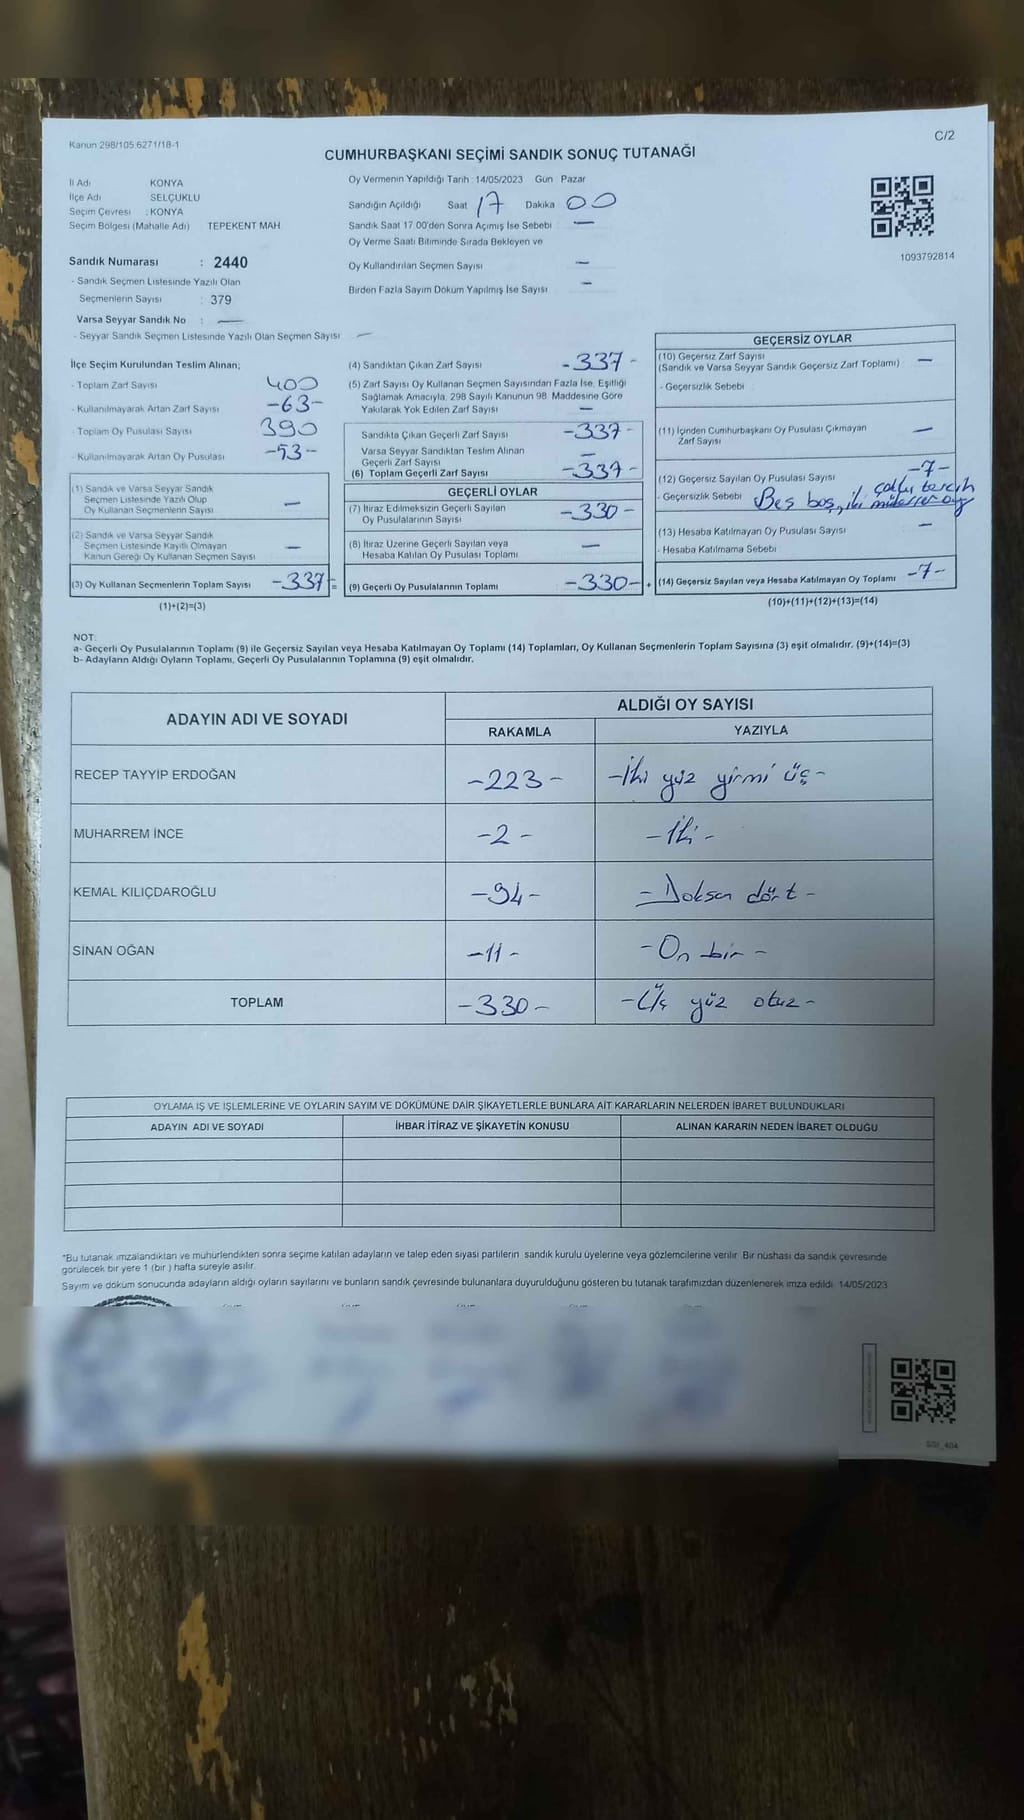 Kanun 298/105 6271/18-1
C/2
CUMHURBAŞKANI SEÇİMİ SANDIK SONUÇ TUTANAĞI
İl Adı KONYA
İlçe Adı SELÇUKLU
Seçim Çevresi : KONYA
Seçim Bölgesi (Mahalle Adı) TEPEKENT MAH.
Sandık Numarası : 2440
- Sandık Seçmen Listesinde Yazılı Olan
Seçmenlerin Sayısı : 379
Varsa Seyyar Sandık No : —
- Seyyar Sandık Seçmen Listesinde Yazılı Olan Seçmen Sayısı —
Oy Vermenin Yapıldığı Tarih : 14/05/2023 Gün Pazar
Sandığın Açıldığı Saat 17 Dakika 00
Sandık Saat 17.00'den Sonra Açımış İse Sebebi —
Oy Verme Saati Bitiminde Sırada Bekleyen ve
Oy Kullandırılan Seçmen Sayısı —
Birden Fazla Sayım Döküm Yapılmış İse Sayısı —
1093792814
İlçe Seçim Kurulundan Teslim Alınan;
- Toplam Zarf Sayısı 400
- Kullanılmayarak Artan Zarf Sayısı -63-
- Toplam Oy Pusulası Sayısı 390
- Kullanılmayarak Artan Oy Pusulası -53-
(1) Sandık ve Varsa Seyyar Sandık
Seçmen Listesinde Yazılı Olup
Oy Kullanan Seçmenlerin Sayısı —
(2) Sandık ve Varsa Seyyar Sandık
Seçmen Listesinde Kayıtlı Olmayan
Kanun Gereği Oy Kullanan Seçmen Sayısı —
(3) Oy Kullanan Seçmenlerin Toplam Sayısı -337- =
(1)+(2)=(3)
(4) Sandıktan Çıkan Zarf Sayısı -337-
(5) Zarf Sayısı Oy Kullanan Seçmen Sayısından Fazla İse, Eşitliği
Sağlamak Amacıyla, 298 Sayılı Kanunun 98. Maddesine Göre
Yakılarak Yok Edilen Zarf Sayısı —
Sandıkta Çıkan Geçerli Zarf Sayısı -337-
Varsa Seyyar Sandıktan Teslim Alınan
Geçerli Zarf Sayısı —
(6) Toplam Geçerli Zarf Sayısı -337-
GEÇERLİ OYLAR
(7) İtiraz Edilmeksizin Geçerli Sayılan
Oy Pusulalarının Sayısı -330-
(8) İtiraz Üzerine Geçerli Sayılan veya
Hesaba Katılan Oy Pusulası Toplamı —
(9) Geçerli Oy Pusulalarının Toplamı -330- +
GEÇERSİZ OYLAR
(10) Geçersiz Zarf Sayısı
(Sandık ve Varsa Seyyar Sandık Geçersiz Zarf Toplamı) —
- Geçersizlik Sebebi
(11) İçinden Cumhurbaşkanı Oy Pusulası Çıkmayan
Zarf Sayısı —
(12) Geçersiz Sayılan Oy Pusulası Sayısı -7-
- Geçersizlik Sebebi Beş boş, iki
(13) Hesaba Katılmayan Oy Pusulası Sayısı —
- Hesaba Katılmama Sebebi
(14) Geçersiz Sayılan veya Hesaba Katılmayan Oy Toplamı -7-
(10)+(11)+(12)+(13)=(14)
NOT:
a- Geçerli Oy Pusulalarının Toplamı (9) ile Geçersiz Sayılan veya Hesaba Katılmayan Oy Toplamı (14) Toplamları, Oy Kullanan Seçmenlerin Toplam Sayısına (3) eşit olmalıdır. (9)+(14)=(3)
b- Adayların Aldığı Oyların Toplamı, Geçerli Oy Pusulalarının Toplamına (9) eşit olmalıdır.
ADAYIN ADI VE SOYADI ALDIĞI OY SAYISI
RAKAMLA YAZIYLA
RECEP TAYYİP ERDOĞAN -223- -İki yüz yirmi üç-
MUHARREM İNCE -2- -İki-
KEMAL KILIÇDAROĞLU -94- -Doksan dört-
SİNAN OĞAN -11- -On bir-
TOPLAM -330- -Üç yüz otuz-
OYLAMA İŞ VE İŞLEMLERİNE VE OYLARIN SAYIM VE DÖKÜMÜNE DAİR ŞİKAYETLERLE BUNLARA AİT KARARLARIN NELERDEN İBARET BULUNDUKLARI
ADAYIN ADI VE SOYADI İHBAR İTİRAZ VE ŞİKAYETİN KONUSU ALINAN KARARIN NEDEN İBARET OLDUĞU
*Bu tutanak imzalandıktan ve mühürlendikten sonra seçime katılan adayların ve talep eden siyasi partilerin sandık kurulu üyelerine veya gözlemcilerine verilir. Bir nüshası da sandık çevresinde
görülecek bir yere 1 (bir ) hafta süreyle asılır.
Sayım ve döküm sonucunda adayların aldığı oyların sayılarını ve bunların sandık çevresinde bulunanlara duyurulduğunu gösteren bu tutanak tarafımızdan düzenlenerek imza edildi. 14/05/2023